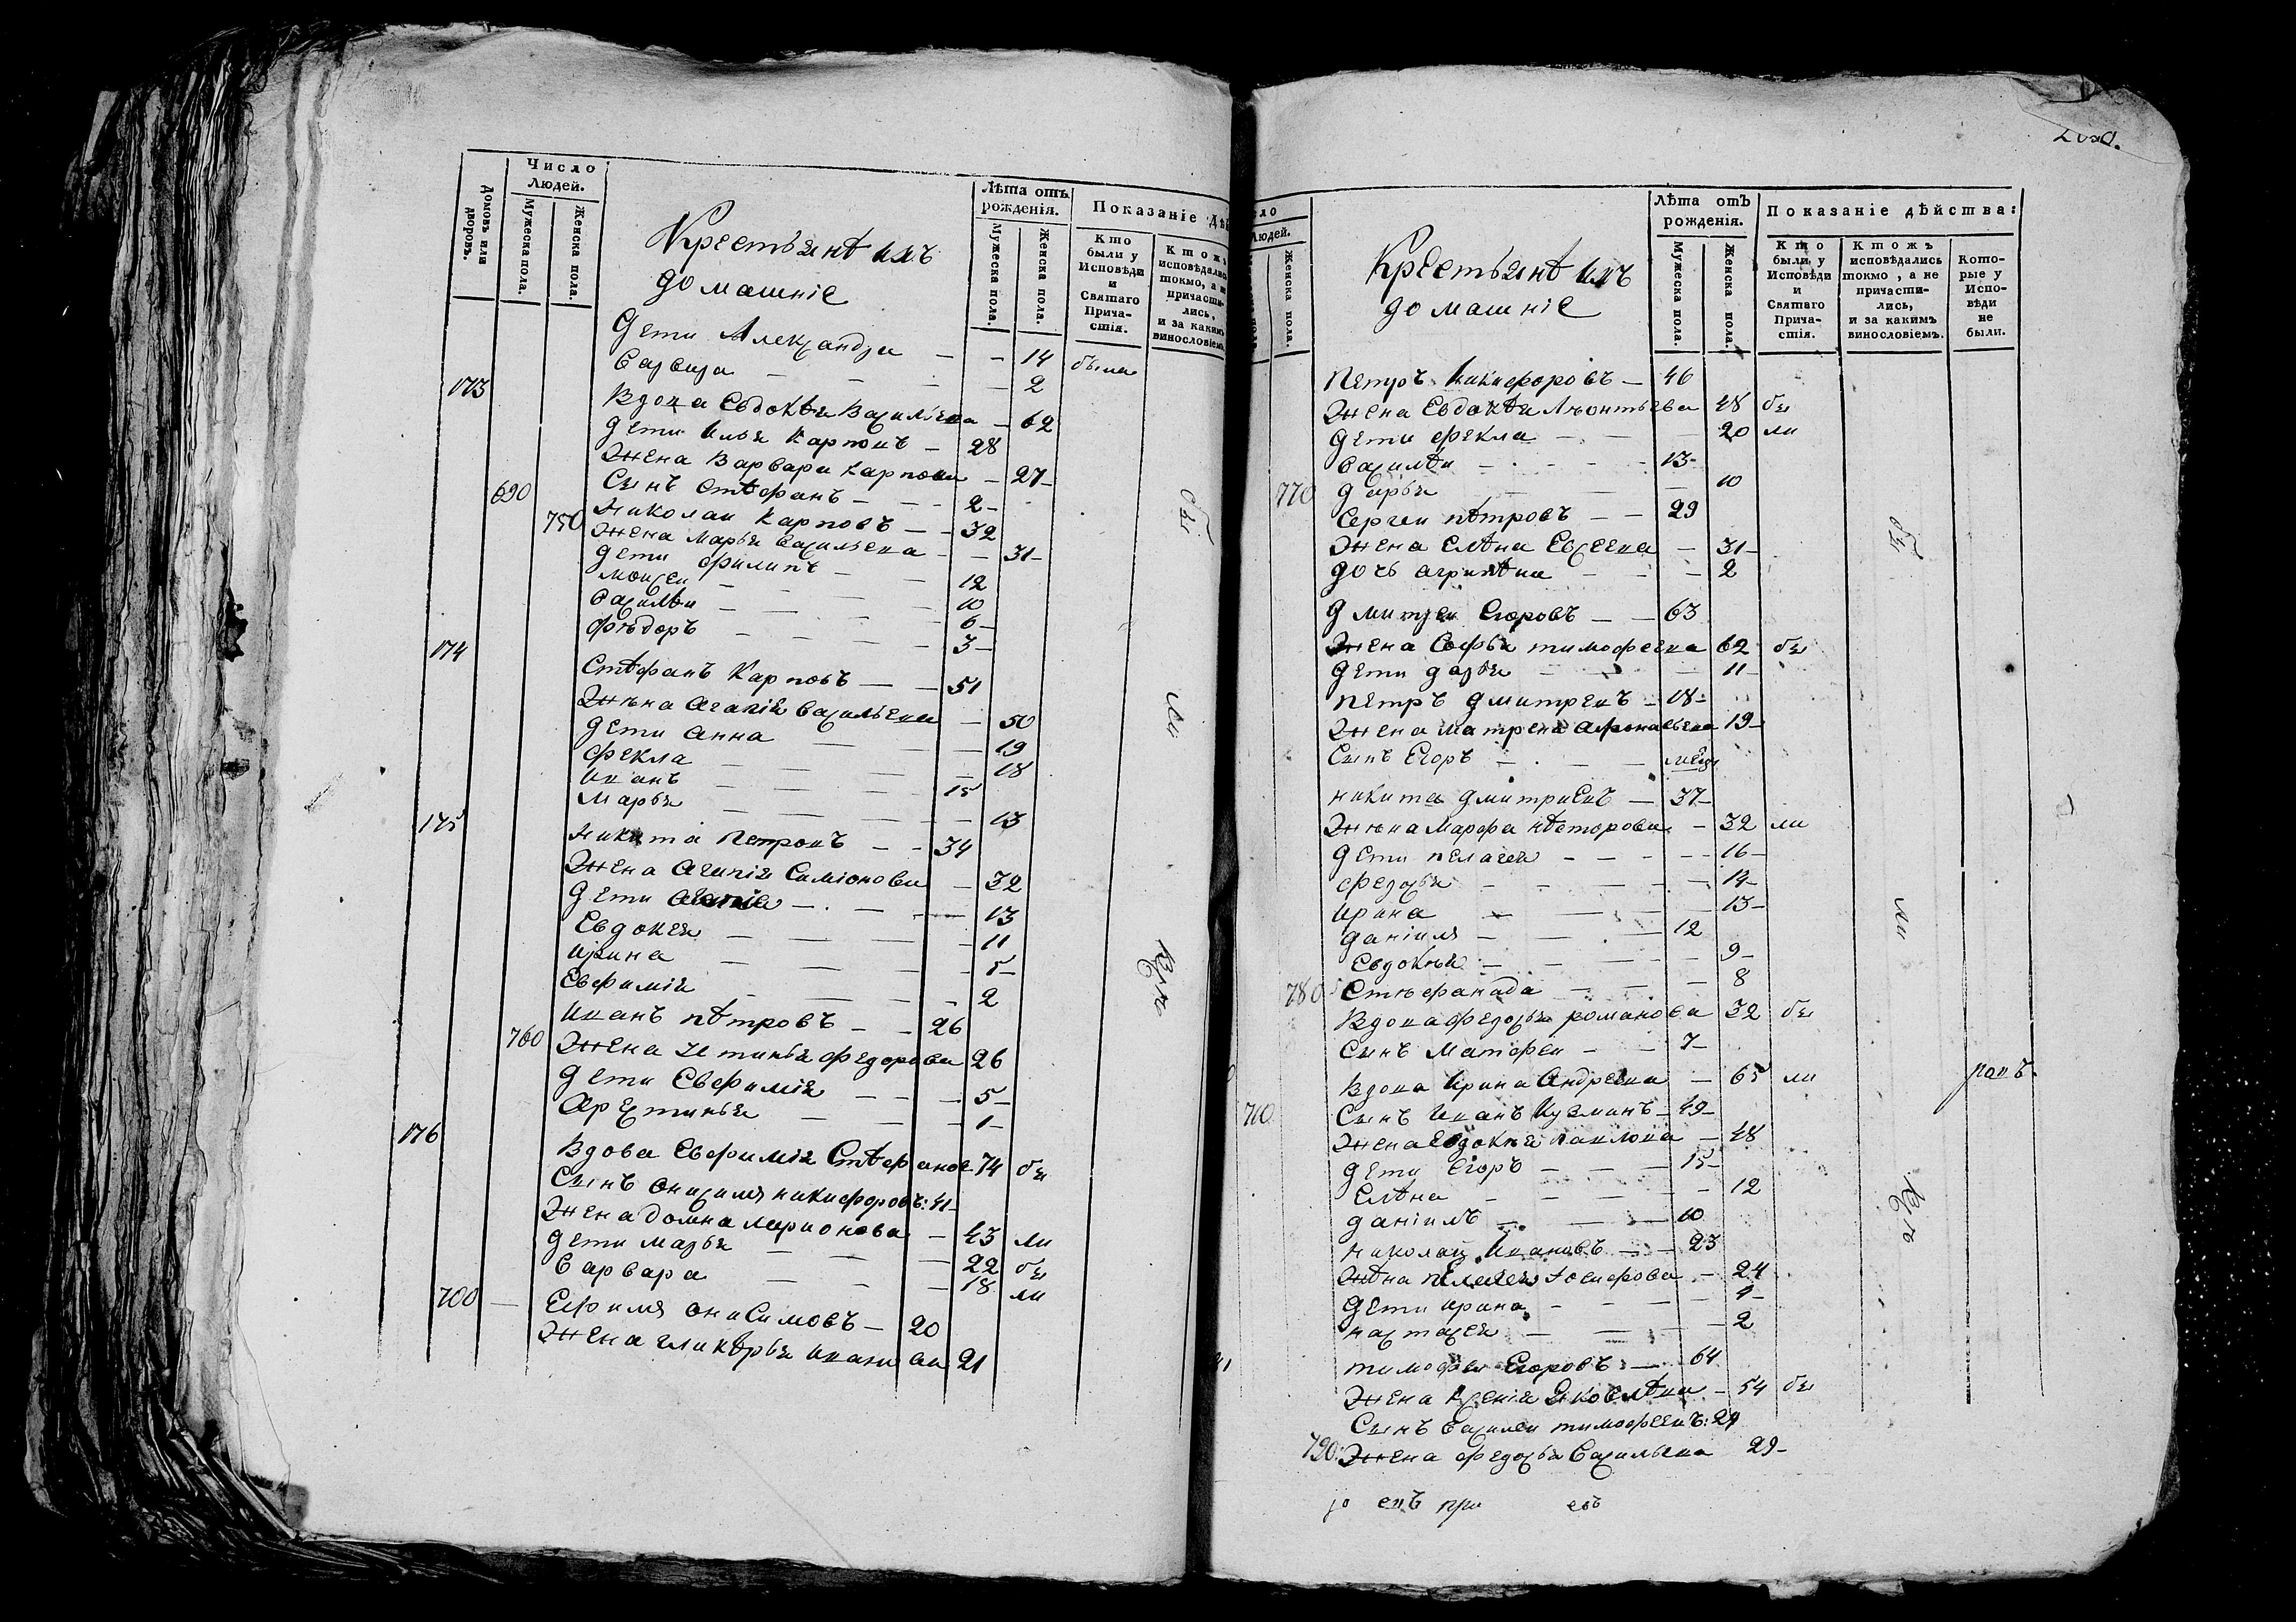 Домовъ или дворовъ.
Число Людей.
Мужеска пола.
Женска пола.
Крестьянѣ ихъ
домашніе
Лѣта отъ рожденія.
Мужеска пола.
Женска пола.
Показаніе дѣй
Кто были у Исповѣди и Святаго Причастія.
Ктожъ исповѣдались токмо, а не причастились, и за какимъ винословіемъ.
Дети Александра — — 14 были
Варвара — — 2
173 Вдова Евдокѣя Васильева — 62
Дети Илья Карповъ — 28
Жена Варвара Карпова — 27
690 Сынъ Стѣфанъ — 2
750 Николаи Карповъ — 32
Жена Марья Васильева — 31
Дети Филипъ — 12
Моисеи — 10
Василѣи — 6
Фѣдоръ — 3
174 Стѣфанъ Карповъ — 51
Жѣна Агапія Васильева — 50
Дети Анна — 19
Фекла — 18
Иванъ — 15
Марья — 13
175 Никита Петровъ — 34
Жена Агапія Симіонова — 32
Дети — 13
Евдокея — 11
Ирина — 5
Евфимія — 2
Иванъ пѣтровъ — 26
760 Жена Устинья Федорова 26
Дети Евфимія — 5
— 1
176 Вдова Евфимія Стѣфанов 74 бы
Сынъ Онисимя никифоровъ: 41
Жена домна ларионова — 43 ли
Дети марья — 22 бы
Варвара — 18 ли
700 Ефимя Онисимовъ — 20
Жена гликѣрья иванова 21
бы
ли
же
Людей.
Женска пола.
Крестьянѣ ихъ
домашніе
Лѣта отъ рожденія.
Мужеска пола.
Женска пола.
Показаніе дѣйства:
Кто были у Исповѣди и Святаго Причастія.
Ктожъ исповѣдались токмо, а не причастились, и за какимъ винословіемъ.
Которые у Исповѣди не были.
Петръ Никифоровъ — 46
Жена Евдокѣя Лѣонтьева 48 бы
Дети Фекла — 20 ли
Василѣи — 13
770 Дарья — 10
Сергеи пѣтровъ — 29
Жена Елѣна Евсеева — 31
Дочь агрипѣна — 2
Дмитреи Егоровъ — 63
Жена Софья тимофеева 62 бы
Дети дарья — 11
Петръ Дмитревъ — 18
Жена Матрена афонасьева 19
Сынъ Егоръ —
никита Дмитриевъ — 37
Жѣна Марфа нѣсторова — 32 ли
Дети пелагея — 16
Федосья — 14
Ирина — 13
Даніиля — 12
Евдокѣя — 9
780 Стѣфанида — 8
Вдова Федосья романова 32 бы
Сынъ Матфеи — 7
Вдова Ирина Андреева — 65 ли
710 Сынъ Иванъ Кузминъ — 49
Жена Евдокѣя павлова — 48
Дети Егоръ — 15
Елѣна — 12
Даніилъ — 10
Николаи Ивановъ — 23
Жѣна пелагея іосифова — 24
Дети ирина — 4
настасея — 2
тимофеи Егоровъ — 64
Жена Ксенія Яковлѣва — 54 бы
Сынъ Василеи тимофеевъ: 29
790 Жена Федосья Васильева 29
бы
ли
же